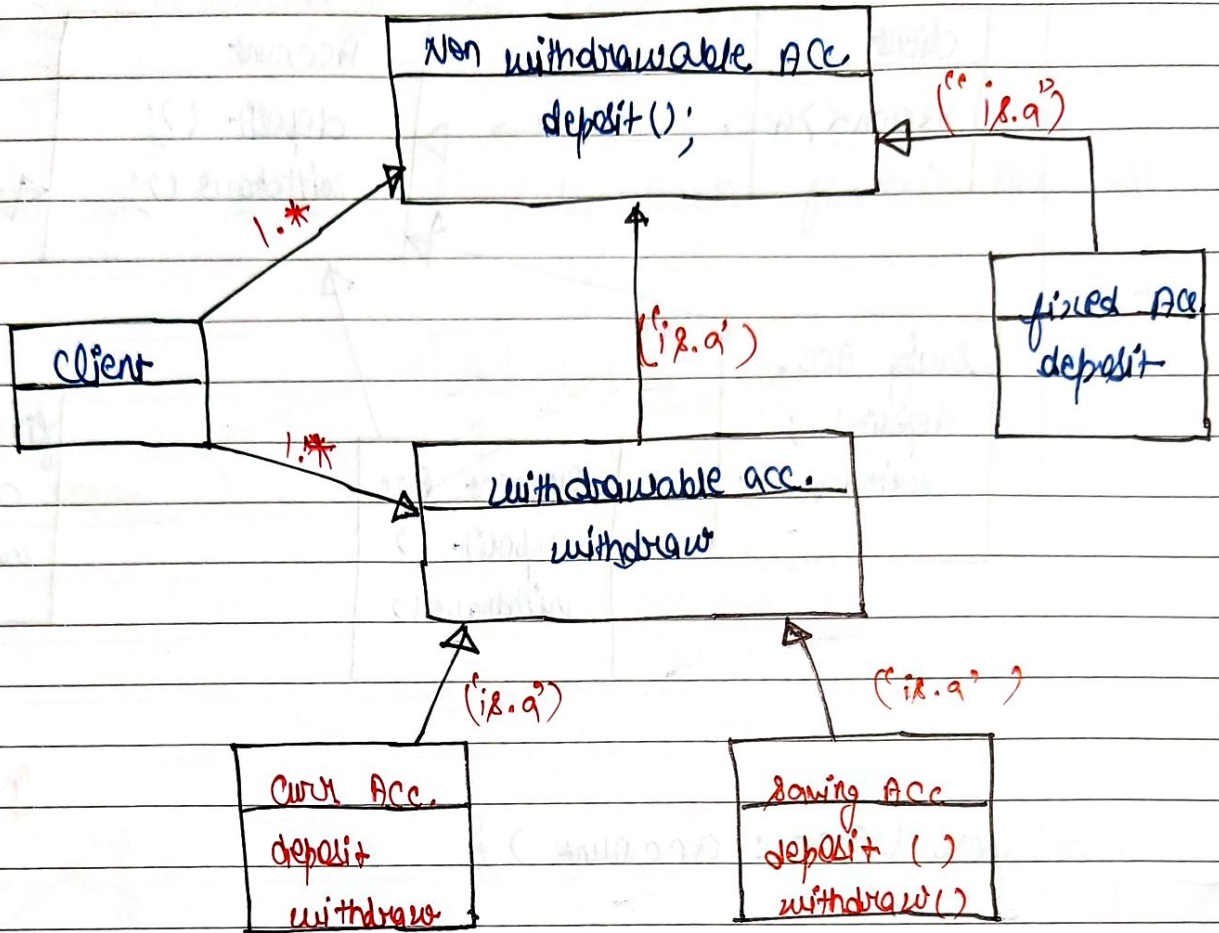 Non withdrawable Acc
deposit();
("is.a")
1.*
fixed Acc
deposit
("is.a')
Client
1.*
withdrawable acc.
withdraw
("is.a")
("is.a")
Curr Acc.
deposit
withdraw
Saving Acc
deposit ()
withdraw()